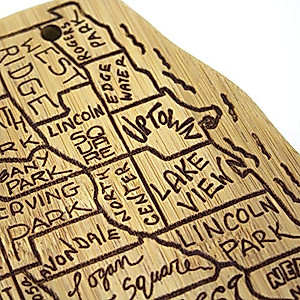 WEST
RIDGE
ROGERS
PARK
EDGE
WATER
LINCOLN
SQUARE
UPTOWN
PARK
IRVING
PARK
NORTH
CENTER
LAKE
VIEW
AVONDALE
LINCOLN
PARK
Logan
Square